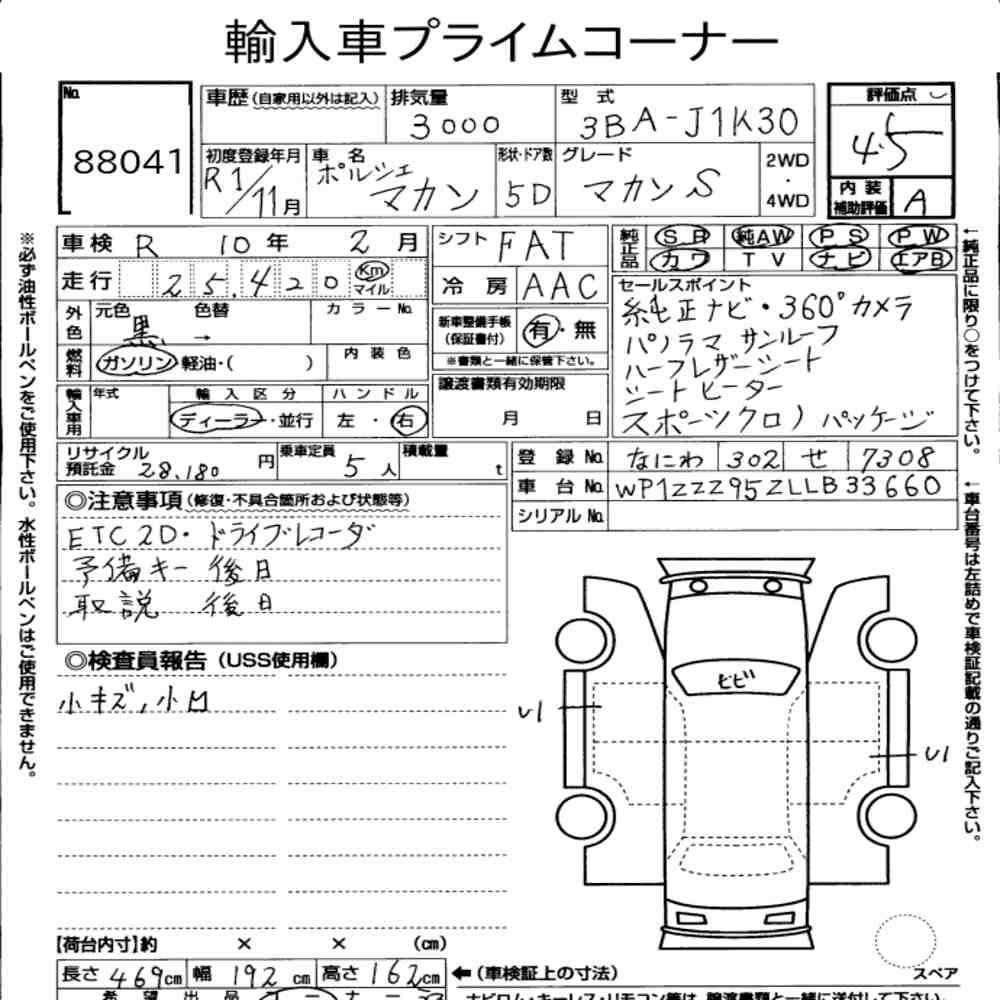 輸入車プライムコーナー
No.
88041
車歴(自家用以外は記入)
排気量
3000
型式
3BA-J1K30
評価点
4.5
初度登録年月
R1/11月
車名
ポルシェ
マカン
形状・ドア数
5D
グレード
マカン S
2WD
・
4WD
内装
補助評価
A
車検 R 10年 2月
シフト FAT
純正品
SR 純AW PS PW
カワ TV ナビ エアB
走行 25,420 Km マイル
冷房 AAC
セールスポイント
純正ナビ・360°カメラ
パノラマ サンルーフ
ハーフレザーシート
シートヒーター
スポーツクロノ パッケージ
外色
元色 色替
黒 →
カラーNo.
新車整備手帳
(保証書付)
有・無
※書類と一緒に保管下さい。
燃料
ガソリン・軽油・( )
内装色
譲渡書類有効期限
月 日
輸入車用
年式
輸入区分
ディーラー・並行
ハンドル
左・右
リサイクル
預託金 28,180 円
乗車定員 5人
積載量 t
登録No. なにわ 302 せ 7308
車台No. WP1ZZZ95ZLLB33660
シリアルNo.
◎注意事項(修復・不具合箇所および状態等)
ETC2D・ドライブレコーダ
予備キー 後日
取説 後日
◎検査員報告(USS使用欄)
小キズ,小凹
ヒビ
U1
U1
スペア
【荷台内寸】約 × × (cm)
長さ 469cm 幅 192cm 高さ 162cm
←(車検証上の寸法)
希望出品コーナー
ナビロム・キーレス・リモコン等は、譲渡書類と一緒に送付して下さい。
※必ず油性ボールペンをご使用下さい。水性ボールペンはご使用できません。
←純正品に限り○をつけて下さい。
←車台番号は左詰めで車検証記載の通りご記入下さい。